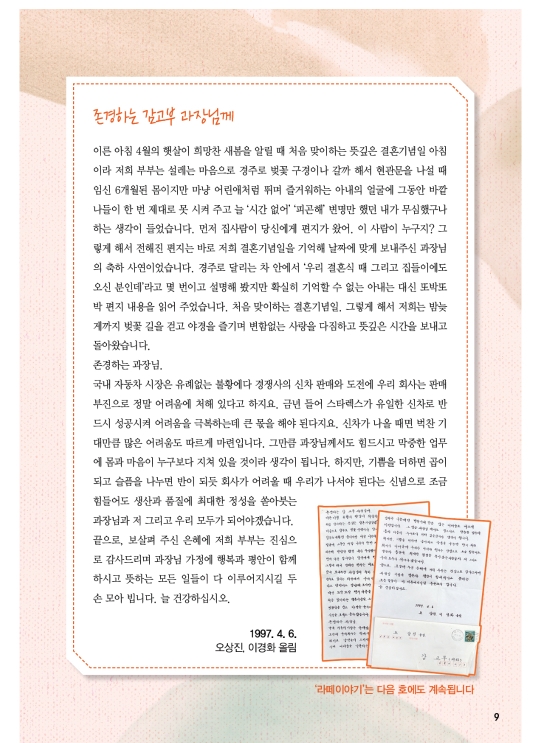 존경하는 감고부 과장님께
이른 아침 4월의 햇살이 희망찬 새봄을 알릴 때 처음 맞이하는 뜻깊은 결혼기념일 아침
이라 저희 부부는 설레는 마음으로 경주로 벚꽃 구경이나 갈까 해서 현관문을 나설 때
임신 6개월된 몸이지만 마냥 어린애처럼 뛰며 즐거워하는 아내의 얼굴에 그동안 바깥
나들이 한 번 제대로 못 시켜 주고 늘 ‘시간 없어’ ‘피곤해’ 변명만 했던 내가 무심했구나
하는 생각이 들었습니다. 먼저 집사람이 당신에게 편지가 왔어. 이 사람이 누구지? 그
렇게 해서 전해진 편지는 바로 저희 결혼기념일을 기억해 날짜에 맞게 보내주신 과장님
의 축하 사연이었습니다. 경주로 달리는 차 안에서 ‘우리 결혼식 때 그리고 집들이에도
오신 분인데’라고 몇 번이고 설명해 봤지만 확실히 기억할 수 없는 아내는 대신 또박또
박 편지 내용을 읽어 주었습니다. 처음 맞이하는 결혼기념일, 그렇게 해서 저희는 밤늦
게까지 벚꽃 길을 걷고 야경을 즐기며 변함없는 사랑을 다짐하고 뜻깊은 시간을 보내고
돌아왔습니다.
존경하는 과장님.
국내 자동차 시장은 유례없는 불황에다 경쟁사의 신차 판매와 도전에 우리 회사는 판매
부진으로 정말 어려움에 처해 있다고 하지요. 금년 들어 스타렉스가 유일한 신차로 반
드시 성공시켜 어려움을 극복하는데 큰 몫을 해야 된다지요. 신차가 나올 때면 벅찬 기
대만큼 많은 어려움도 따르게 마련입니다. 그만큼 과장님께서도 힘드시고 막중한 업무
에 몸과 마음이 누구보다 지쳐 있을 것이라 생각이 됩니다. 하지만, 기쁨을 더하면 곱이
되고 슬픔을 나누면 반이 되듯 회사가 어려울 때 우리가 나서야 된다는 신념으로 조금
힘들어도 생산과 품질에 최대한 정성을 쏟아붓는
과장님과 저 그리고 우리 모두가 되어야겠습니다.
끝으로, 보살펴 주신 은혜에 저희 부부는 진심으
로 감사드리며 과장님 가정에 행복과 평안이 함께
하시고 뜻하는 모든 일들이 다 이루어지시길 두
손 모아 빕니다. 늘 건강하십시오.
1997. 4. 6.
오상진, 이경화 올림
‘라떼이야기’는 다음 호에도 계속됩니다
9